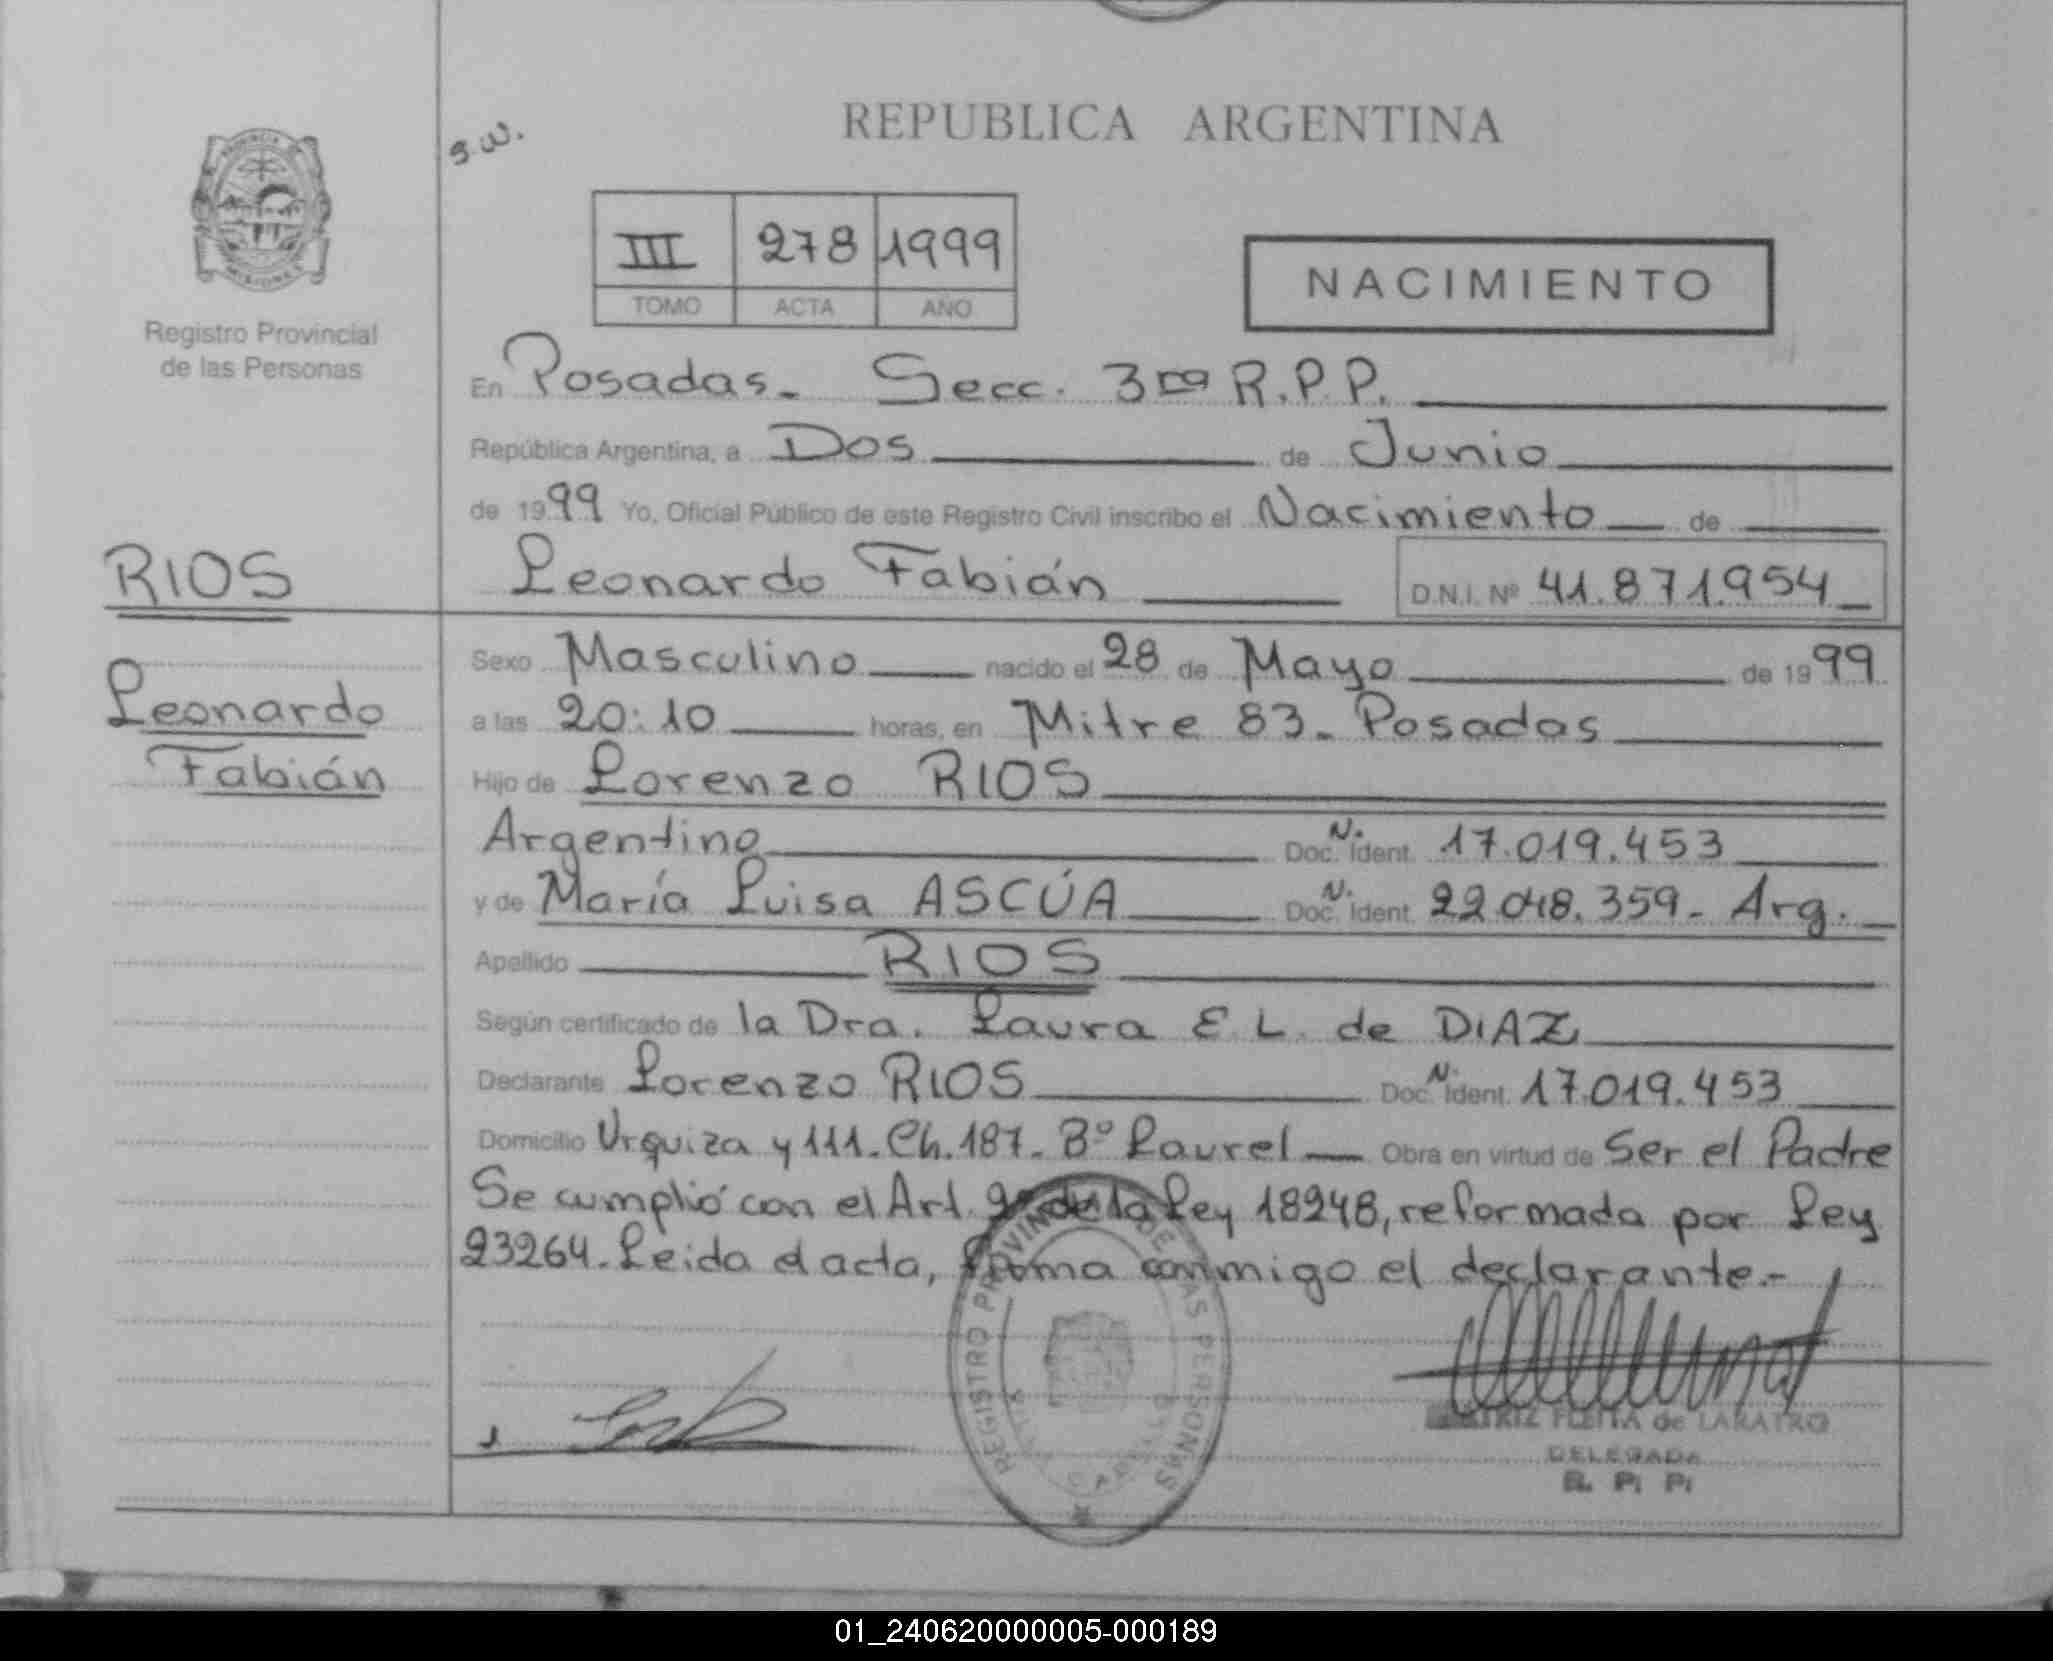 REPUBLICA ARGENTINA
s.w.
III 278 1999
TOMO ACTA AÑO
NACIMIENTO
PROVINCIA DE MISIONES
Registro Provincial
de las Personas
RIOS
Leonardo
Fabián
En Posadas. Secc. 3ra R.P.P.
República Argentina, a Dos de Junio
de 1999 Yo, Oficial Público de este Registro Civil inscribo el Nacimiento de
Leonardo Fabián D.N.I. Nº 41.871.954
Sexo Masculino nacido el 28 de Mayo de 1999
a las 20:10 horas, en Mitre 83. Posadas
Hijo de Lorenzo RIOS
Argentino Doc. N. Ident. 17.019.453
y de María Luisa ASCÚA Doc. N. Ident. 22.048.359- Arg.
Apellido RIOS
Según certificado de la Dra. Laura E L. de DIAZ
Declarante Lorenzo RIOS Doc. N. Ident. 17.019.453
Domicilio Urquiza y 111. Ch. 187. Bº Laurel Obra en virtud de Ser el Padre
Se cumplió con el Art. de la Ley 18248, reformada por Ley
23264. Leida el acta, firma conmigo el declarante.-
REGISTRO PROVINCIAL DE LAS PERSONAS
FLEITA de LARATRO
DELEGADA
R. P. P.
01_240620000005-000189